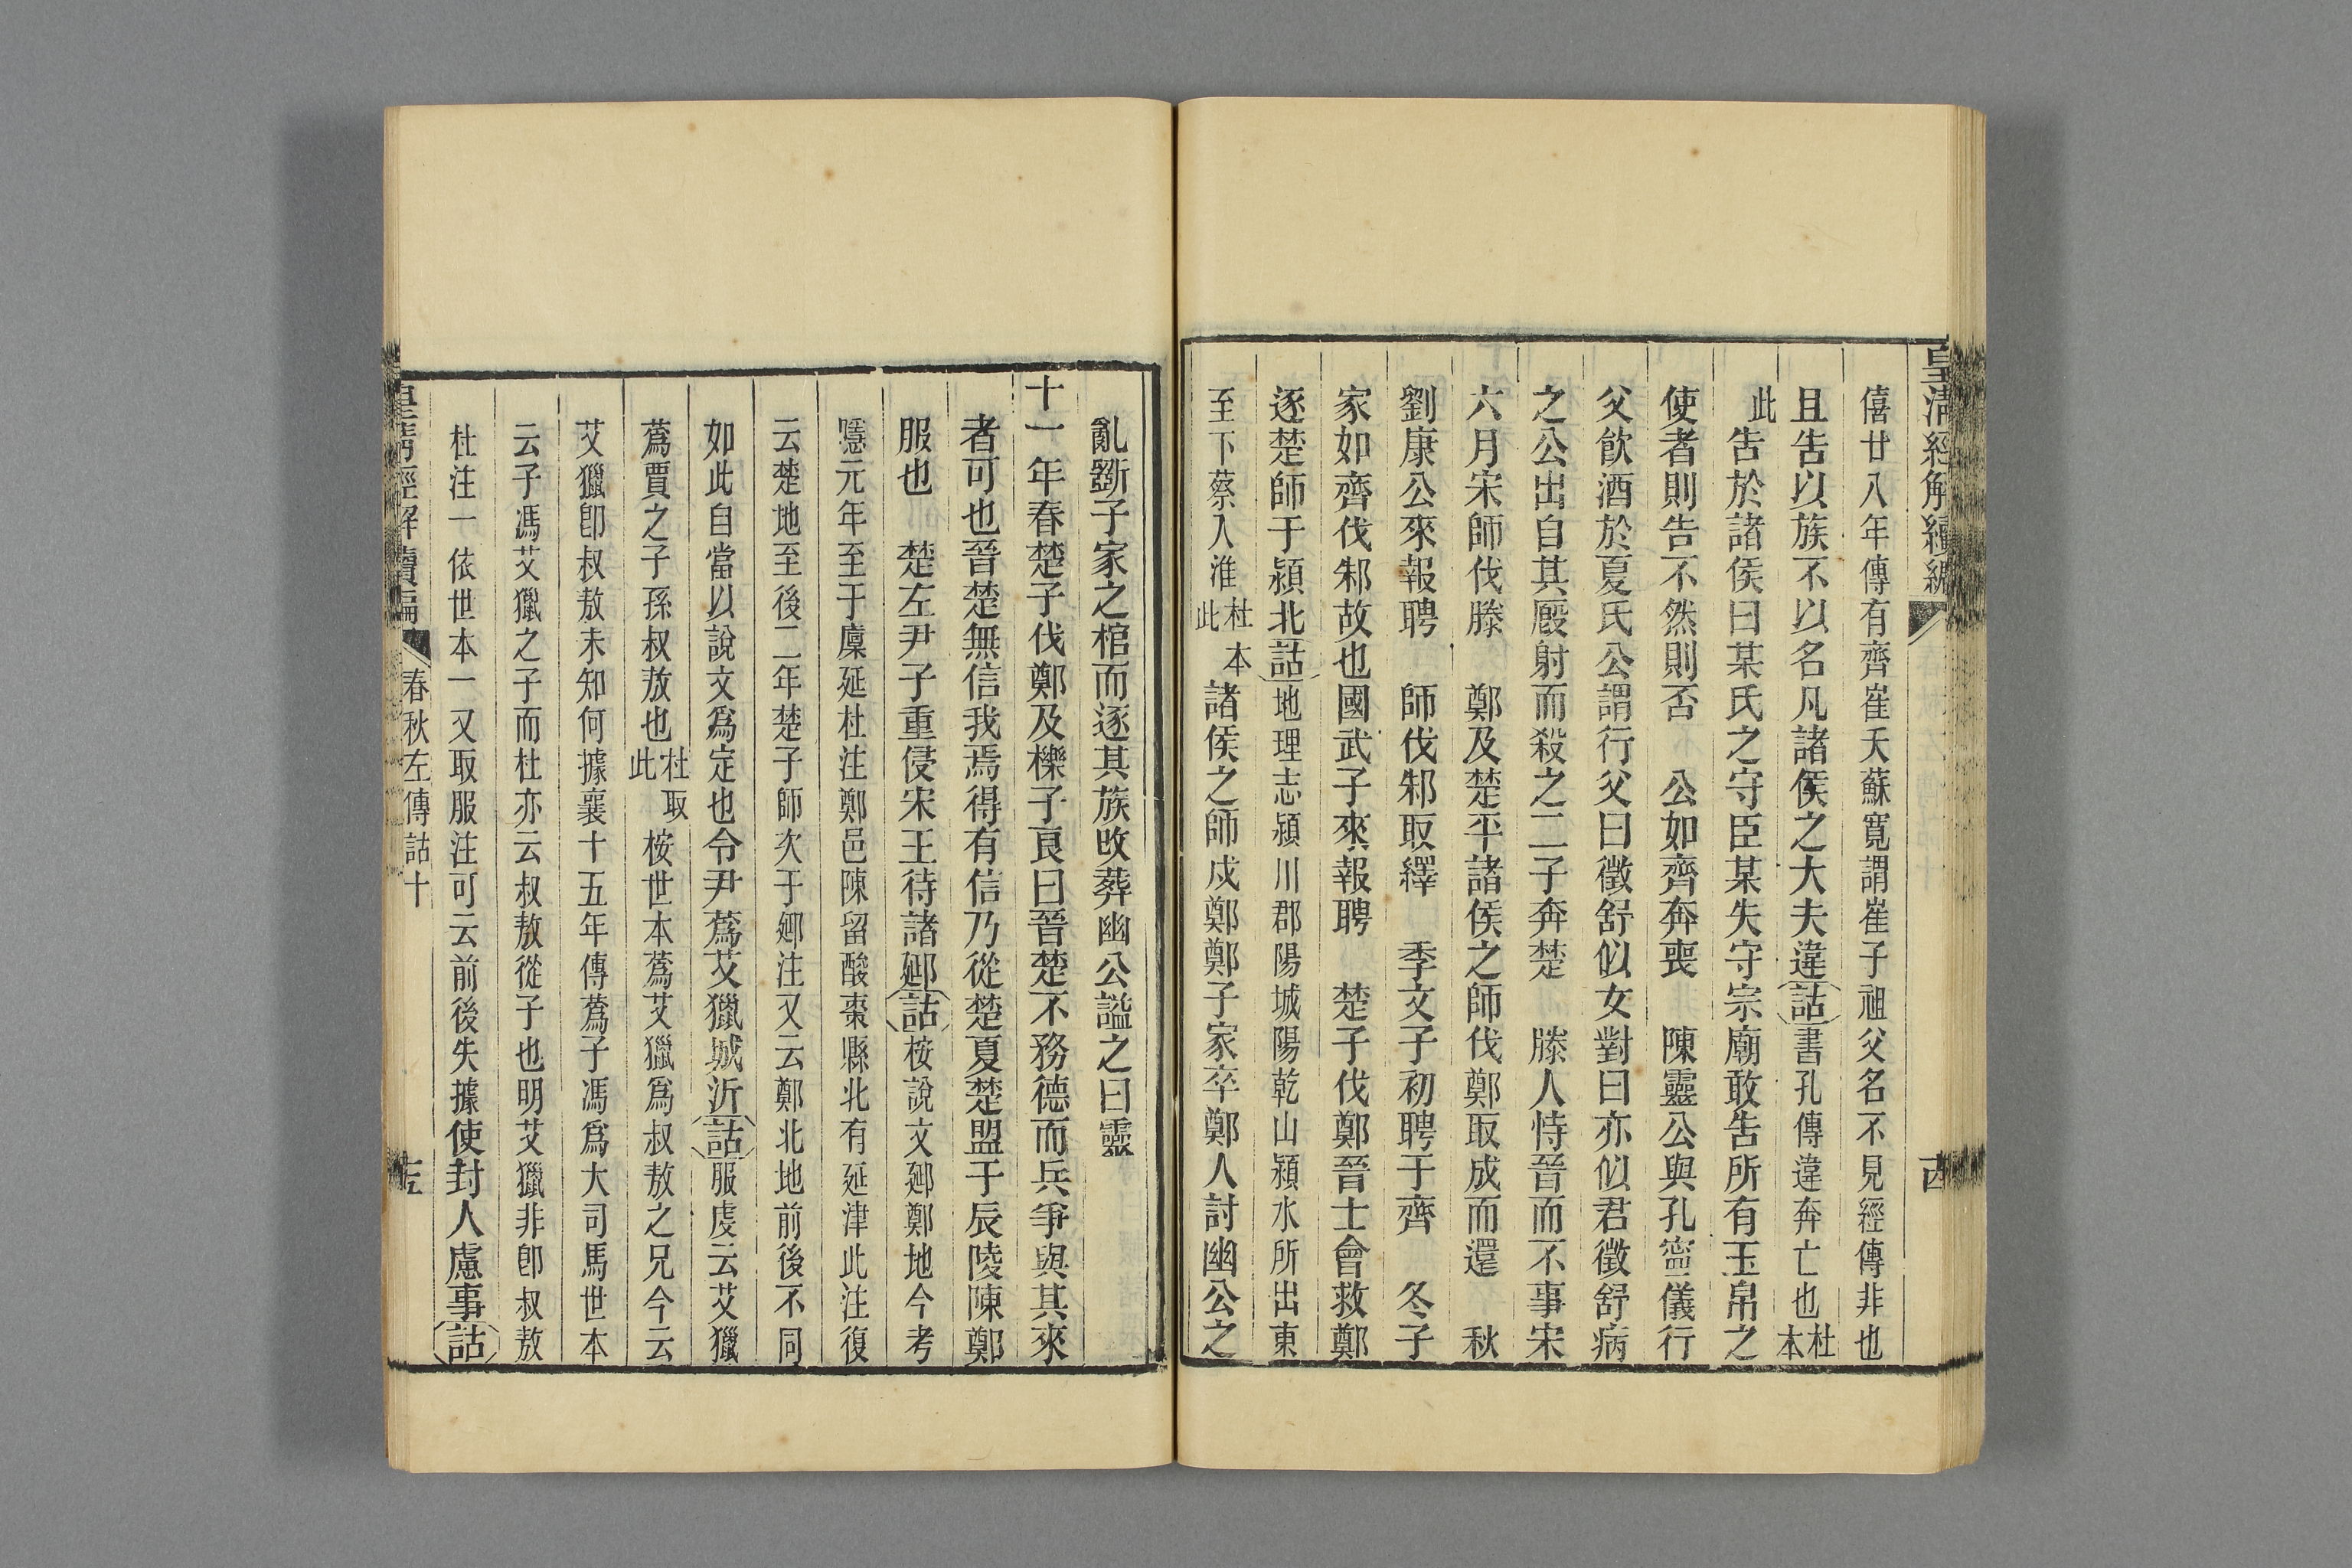 皇清經解續編
僖廿八年傳有齊崔夭蘇寬謂崔子祖父名不見經傳非也
且吿以族不以名凡諸侯之大夫違詁書孔傳違奔亡也杜本
此吿於諸侯曰某氏之守臣某失守宗廟敢吿所有玉帛之
使者則告不然則否　公如齊奔喪　陳靈公與孔寧儀行
父飲酒於夏氏公謂行父曰徵舒似女對曰亦似君徵舒病
之公出自其廄射而殺之二子奔楚　滕人恃晉而不事宋
六月宋師伐滕　鄭及楚平諸侯之師伐鄭取成而還　秋
劉康公來報聘　師伐邾取繹　季文子初聘于齊　冬子
家如齊伐邾故也國武子來報聘　楚子伐鄭晉士會救鄭
逐楚師于潁北詁地理志潁川郡陽城陽乾山潁水所出東
至下蔡入淮杜本此諸侯之師戍鄭鄭子家卒鄭人討幽公之
亂斲子家之棺而逐其族改葬幽公謚之曰靈
十一年春楚子伐鄭及櫟子良曰晉楚不務德而兵爭與其來
者可也晉楚無信我焉得有信乃從楚夏楚盟于辰陵陳鄭
服也　楚左尹子重侵宋王待諸郔詁桉說文郔鄭地今考
隱元年至于廩延杜注鄭邑陳留酸棗縣北有延津此注復
云楚地至後二年楚子師次于郔注又云鄭北地前後不同
如此自當以說文爲定也令尹蔿艾獵城沂詁服虔云艾獵
蔿賈之子孫叔敖也杜取此桉世本蔿艾獵爲叔敖之兄今云
艾獵卽叔敖未知何據襄十五年傳蔿子馮爲大司馬世本
云子馮艾獵之子而杜亦云叔敖從子也明艾獵非卽叔敖
杜注一依世本一又取服注可云前後失據使封人慮事詁
皇清經解續編　春秋左傳詁十